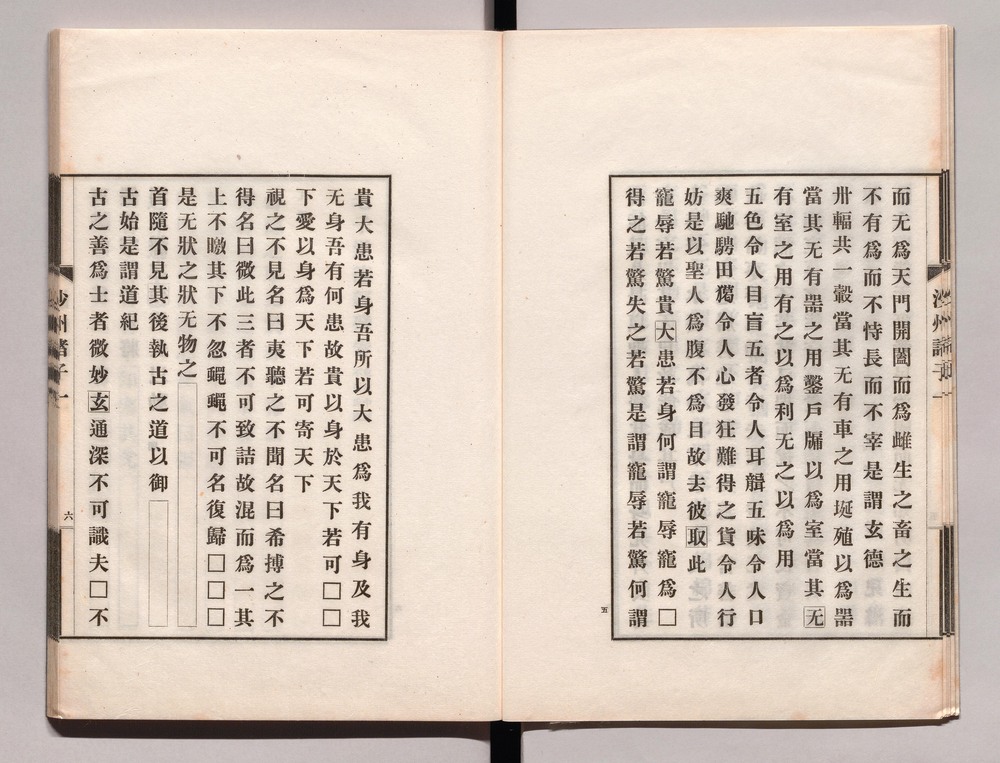 而无爲天門開闔而爲雌生之畜之生而
不有爲而不恃長而不宰是謂玄德
卅輻共一轂當其无有車之用埏殖以爲噐
當其无有噐之用鑿戶牖以爲室當其无
有室之用有之以爲利无之以爲用
五色令人目盲五者令人耳聾五味令人口
爽馳騁田獦令人心發狂難得之貨令人行
妨是以聖人爲腹不爲目故去彼取此
寵辱若驚貴大患若身何謂寵辱寵爲□
得之若驚失之若驚是謂寵辱若驚何謂
五
貴大患若身吾所以大患爲我有身及我
无身吾有何患故貴以身於天下若可□□
下愛以身爲天下若可寄天下
視之不見名曰夷聽之不聞名曰希搏之不
得名曰微此三者不可致詰故混而爲一其
上不曒其下不忽蠅蠅不可名復歸□□□
是无狀之狀无物之
首隨不見其後執古之道以御
古始是謂道紀
古之善爲士者微妙玄通深不可識夫□不
六